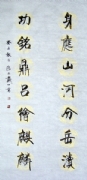 身應山河分岳瀆
功銘鼎呂繪麒麟